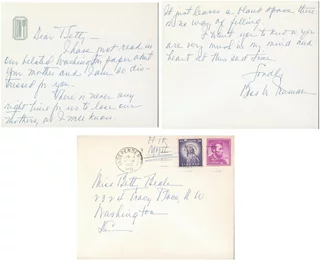 Dear Betty—
I have just read in
our belated Washington paper about
your mother and I am so dis-
tressed for you.
There is never any
right time for us to lose our
mothers, as I well know.
It just leaves a blank space there
is no way of filling.
I want you to know you
are very much in my mind and
heart at this sad time.
Fondly
Bess W. Truman
Miss Betty Beale
2324 Tracy Place N W
Washington
D.C.